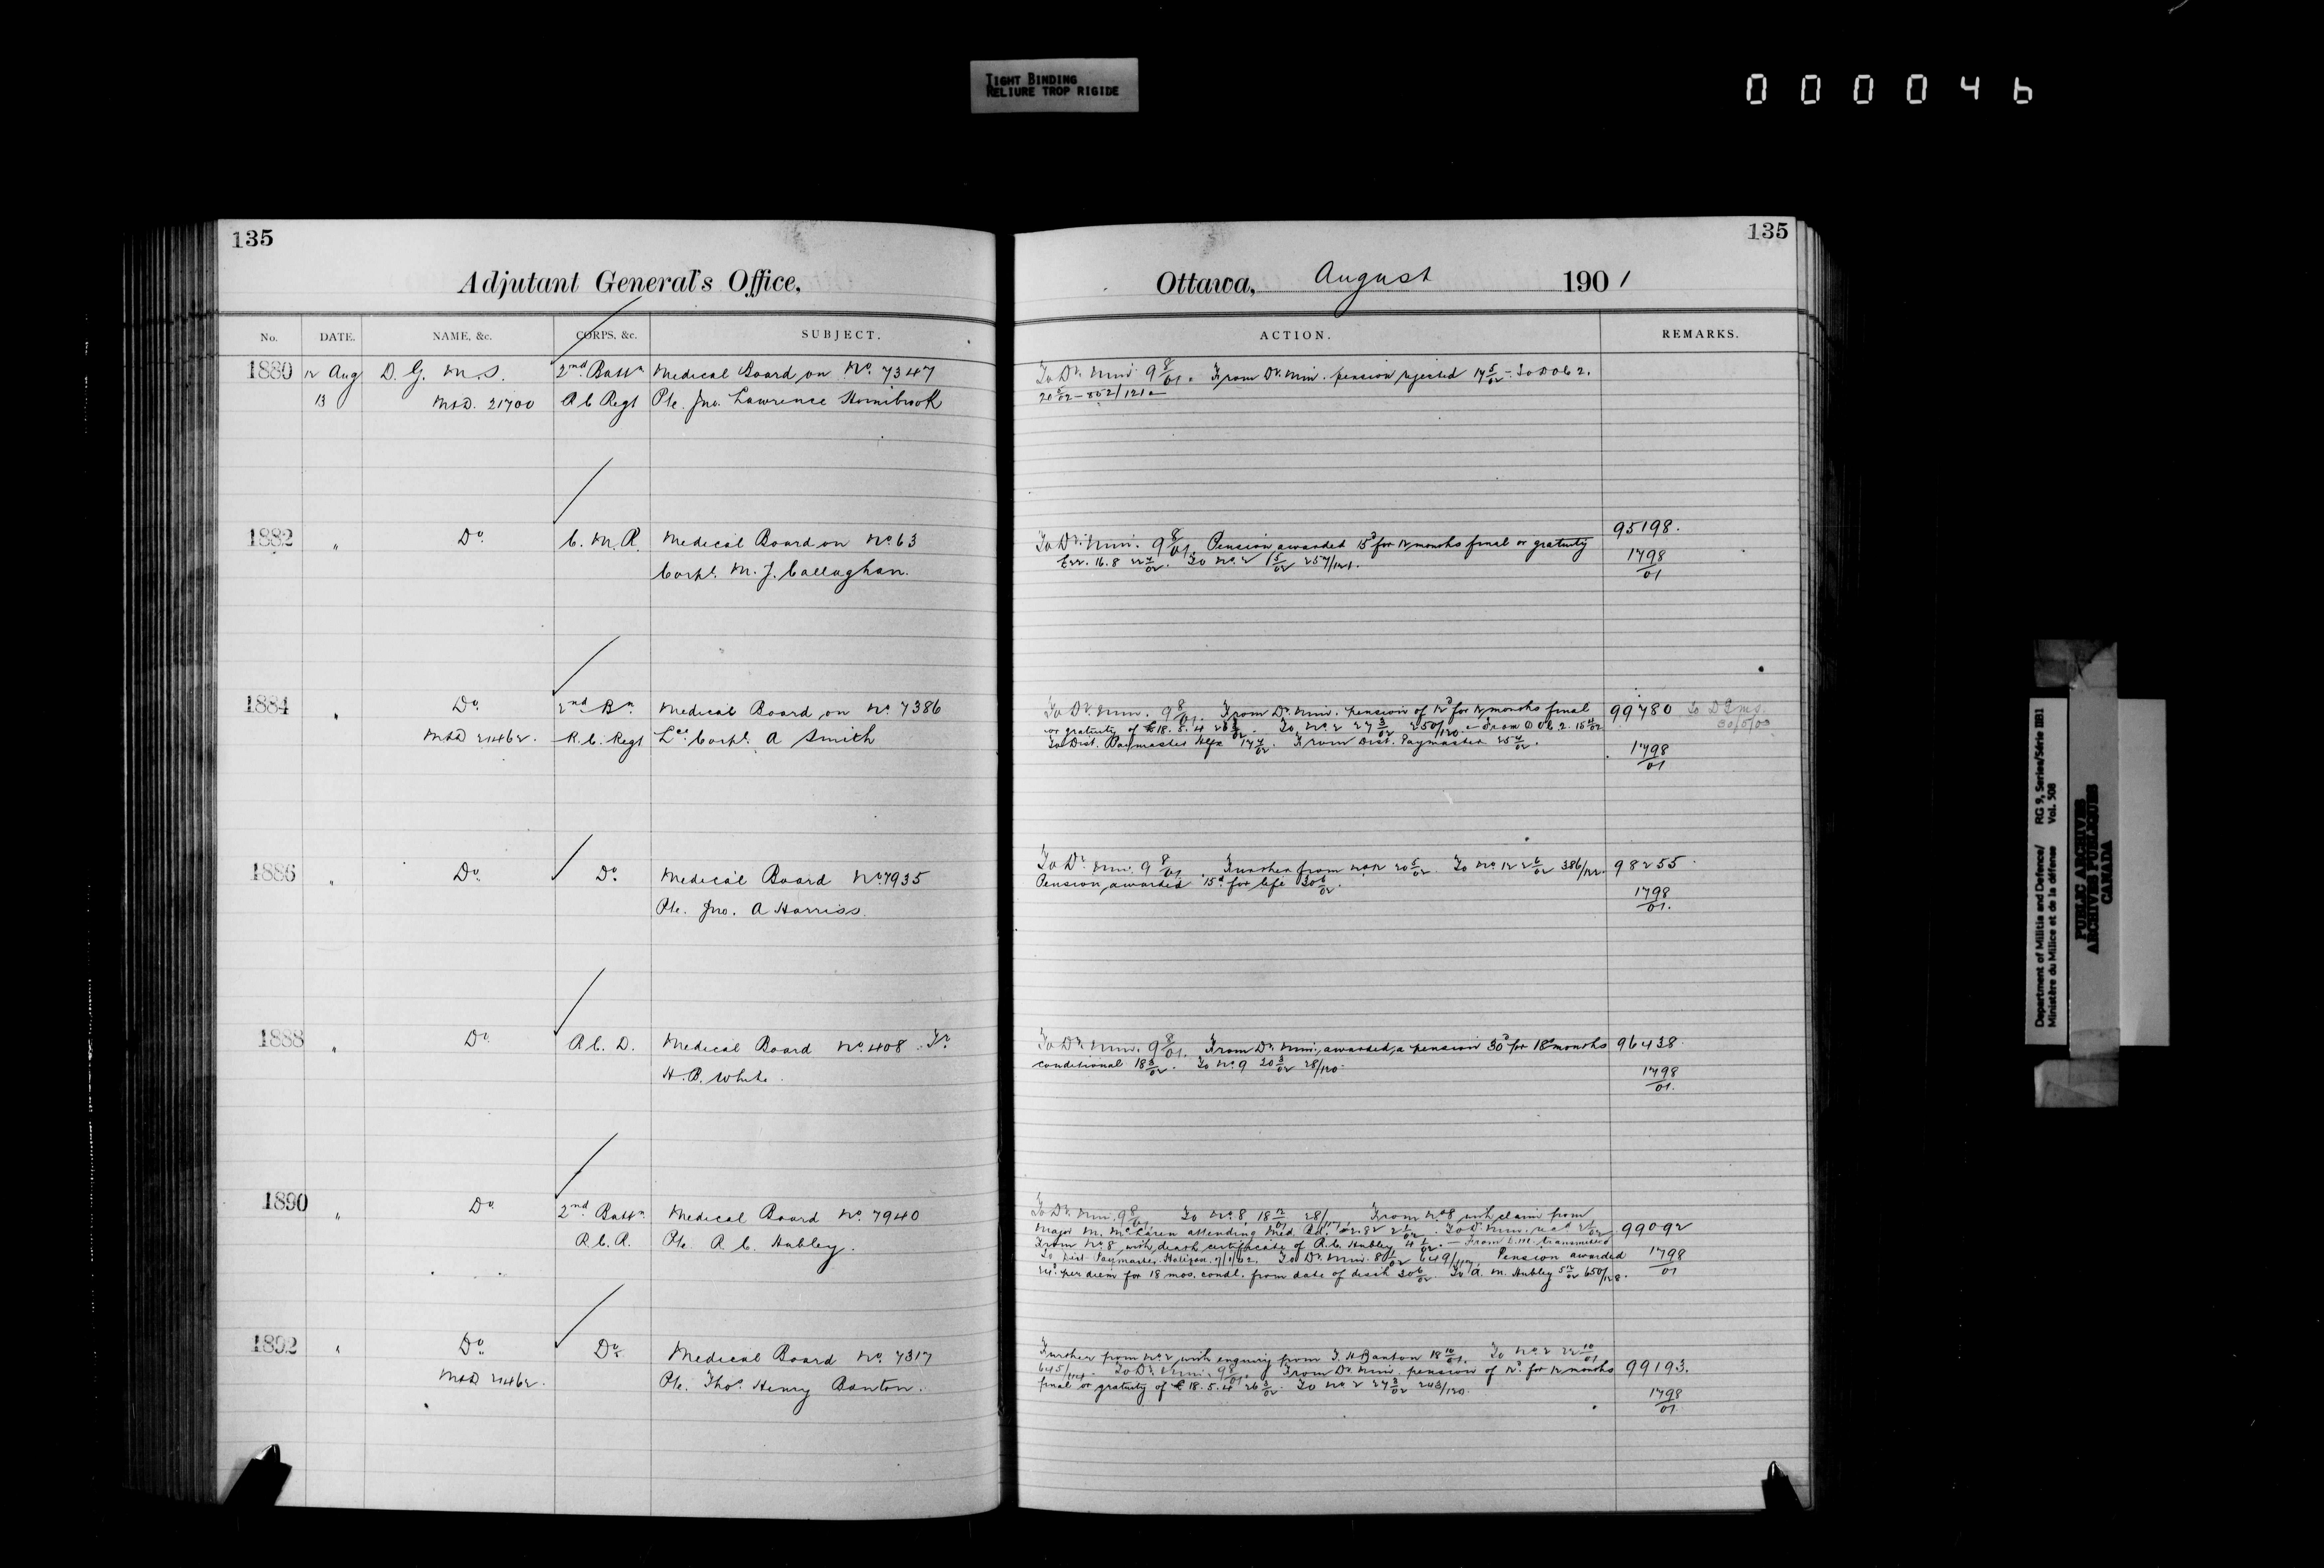 TIGHT BINDING
RELIURE TROP RIGIDE
000046
135
Adjutant General's Office,
No. DATE. NAME, &c. CORPS, &c. SUBJECT.
1880 12 Aug D. G. M. S. 2nd Battn Medical Board on No. 7347
13 M&D. 21700 R C Regt Pte. Jno. Lawrence Hornibrook
1882 " Do. C. M. R. Medical Board on No 63
Corpl. M. J. Callaghan.
1884 " Do. 2nd Bn Medical Board on No 7386
M&D 21462. R. C. Regt Lce Corpl. A Smith
1886 " Do. Do. Medical Board No. 7935
Pte. Jno. A Harriss.
1888 " Do. R C. D. Medical Board No. 408 Tr.
H. P. White.
1890 " Do 2nd Battn Medical Board No. 7940
R. C. R. Pte. R. C. Hubley.
1892 " Do. Do. Medical Board No. 7317
M&D 21462. Pte. Thos. Henry Banton.
135
Ottawa, August 1901
ACTION. REMARKS.
To Dr. Min. 9 8/01. From Dr. Min. pension rejected 14 5/02 - To D O C 2.
20 5/02 - 802/121
95198.
To Dr. Min. 9 8/01. Pension awarded 15d for 12 months final or gratuity
£22. 16. 8 22 4/02. To No. 2 1 5/02 257/121.
1798/01
To Dr. Min. 9 8/01. From Dr. Min. pension of 12d for 12 months final 99780 To DGMS.
or gratuity of £18. 5. 4 26 3/02. To No. 2 27 3/02 250/120. - From D O C. 2. 15 4/02 30/5/03
To Dist. Paymaster Hfx 17 4/02. From Dist. Paymaster 25 4/02.
1798/01
To Dr. Min. 9 8/01. Further from No 12 20 5/02. To No 12 2 6/02 386/122. 98255
Pension awarded 15d for life 30 6/02.
1798/01.
To Dr. Min. 9 8/01. From Dr. Min. awarded a pension 30d for 18 months 96438.
conditional 18 3/02. To No. 9 20 3/02 28/120.
1798/01.
To Dr. Min. 9 8/01. To No. 8 18 12/01 28/117. From No. 8 with claim from
Major M. McLaren attending Med. Bd. 2 1/02. To Dr. Min. 99092
From No. 8 with death certificate of R. C. Hubley 4 1/02. - From transmitted
To Dist. Paymaster, Halifax. 7/1/02. To Dr. Min. 649/117. Pension awarded 1798/01
24d per diem for 18 mos. condl. from date of death 30 6/02. To A. M. Hubley 5 12/02 650/128.
Further from No. 2 with enquiry from T. H Banton 18 10/01. To No. 2 22 10/01
645/114. To Dr. Min. 9 8/01. From Dr. Min. pension of 12d for 12 months 99193.
final or gratuity of £18. 5. 4 26 3/02. To No 2 27 3/02 243/120.
1798/01.
Department of Militia and Defence/ RG 9, Series/Série IIB1
Ministère du Milice et de la défense Vol. 508
PUBLIC ARCHIVES
ARCHIVES PUBLIQUES
CANADA